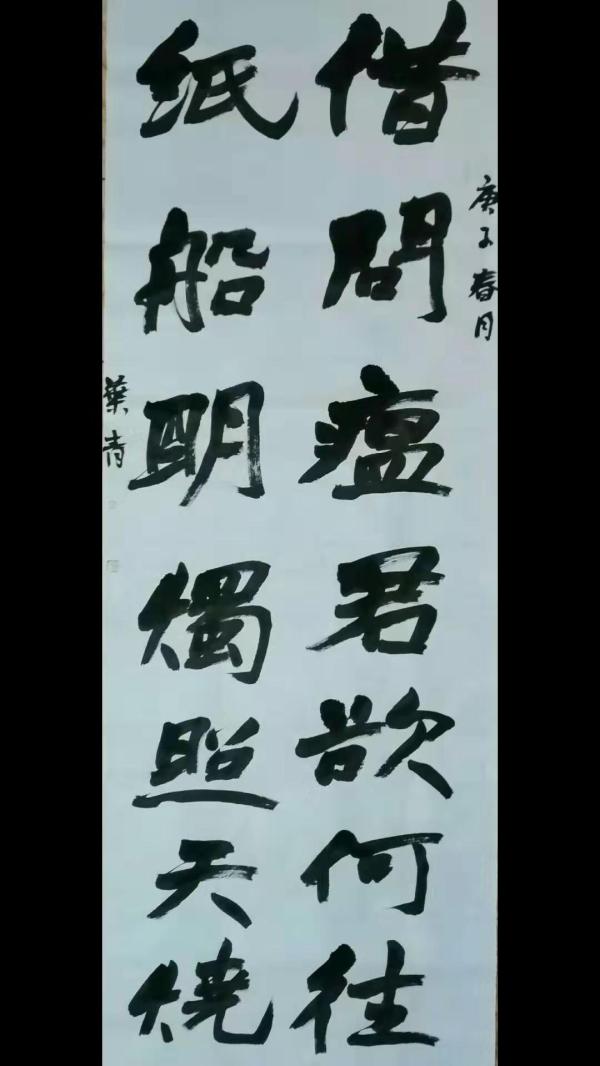 庚子春月
借問瘟君欲何往
紙船明燭照天燒
葉青